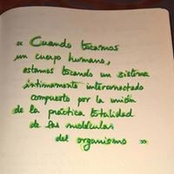 « Cuando tocamos
un cuerpo humano,
estamos tocando un sistema
íntimamente interconectado
compuesto por la unión
de la práctica totalidad
de las moléculas
del organismo »